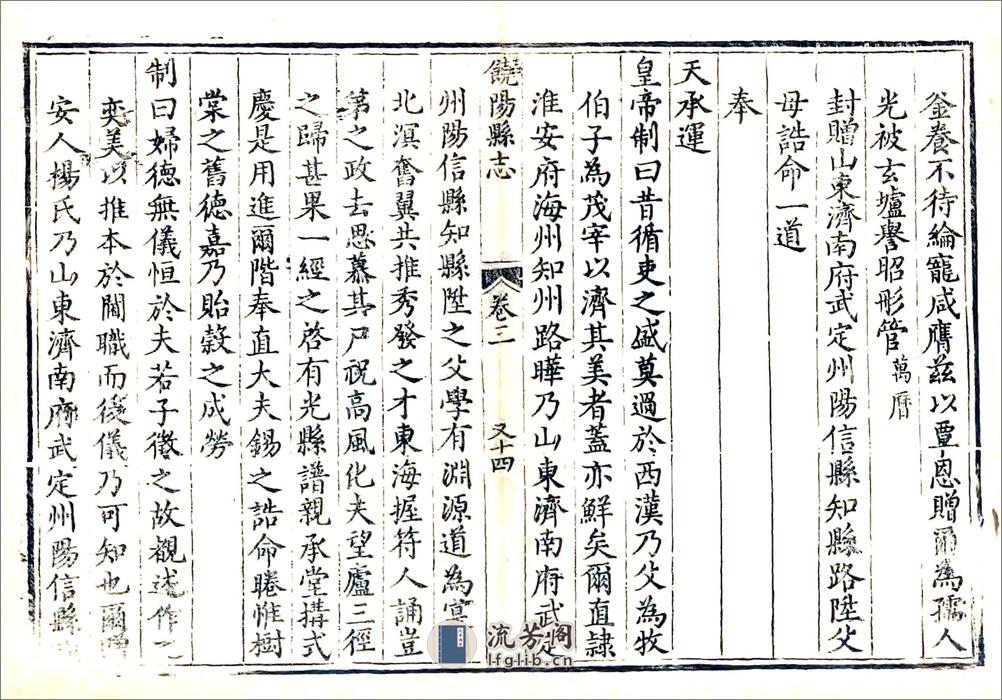 釜養不待綸寵咸膺茲以覃恩贈爾為孺人
光被玄壚譽昭形管萬曆
封贈山東濟南府武定州陽信縣知縣路陞父
母誥命一道
奉
天承運
皇帝制曰昔循吏之盛莫過於西漢乃父為牧
伯子為茂宰以濟其美者蓋亦鮮矣爾直隷
淮安府海州知州路曄乃山東濟南府武定
饒陽縣志
卷三
又十四
州陽信縣知縣陞之父學有淵源道為
北溟奮翼共推秀發之才東海握符人誦豈
苐之政去思慕其尸祝高風化夫望廬三徑
之歸甚果一經之啓有光縣譜親承堂搆式
慶是用進爾階奉直大夫錫之誥命睠惟樹
棠之舊德嘉乃貽穀之成勞
制曰婦德無儀恒於夫若子徵之故觀述作之
奕美以推本於閫職而後儀乃可知也爾
安人楊氏乃山東濟南府武定州陽信縣
流芳閣
lfglib.cn